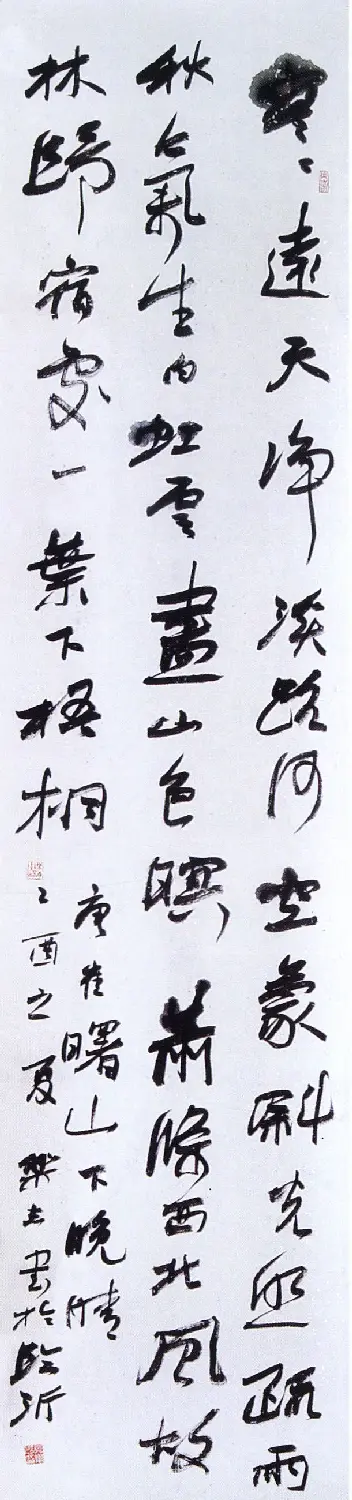 寥〻遠天净溪路何空蒙斜光照疏雨
秋氣生白虹雲盡山色暝蕭條西北風故
林歸宿處一葉下梧桐
唐崔曙山下晚晴
乙酉之夏 書於臨沂